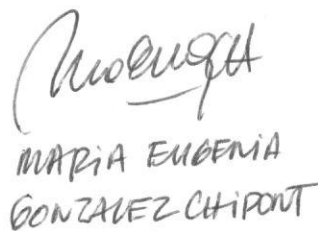 MARIA EUGENIA
GONZALEZ CHIPONT